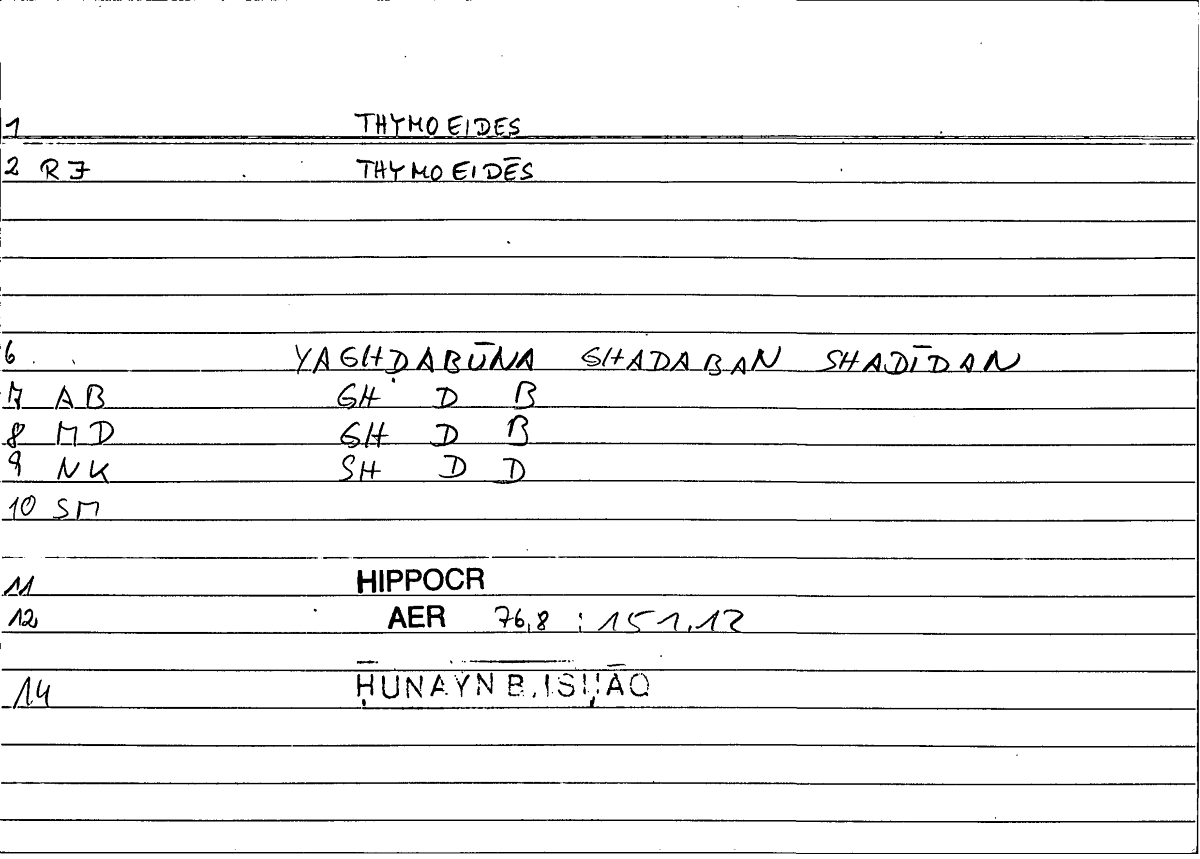 1 THYMOEIDES
2 RF THYMOEIDĒS
6 YAGHḌABŪNA GHADABAN SHADĪDAN
7 AB GH D B
8 MD GH D B
9 NK SH D D
10 SM
11 HIPPOCR
12 AER 76,8 : 151,12
14 ḤUNAYN B. ISḤĀQ